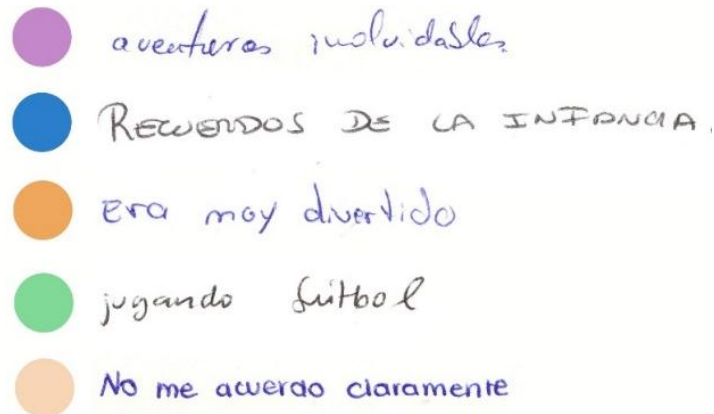 aventuras inolvidables.
RECUERDOS DE LA INFANCIA.
Era muy divertido
jugando fútbol
No me acuerdo claramente